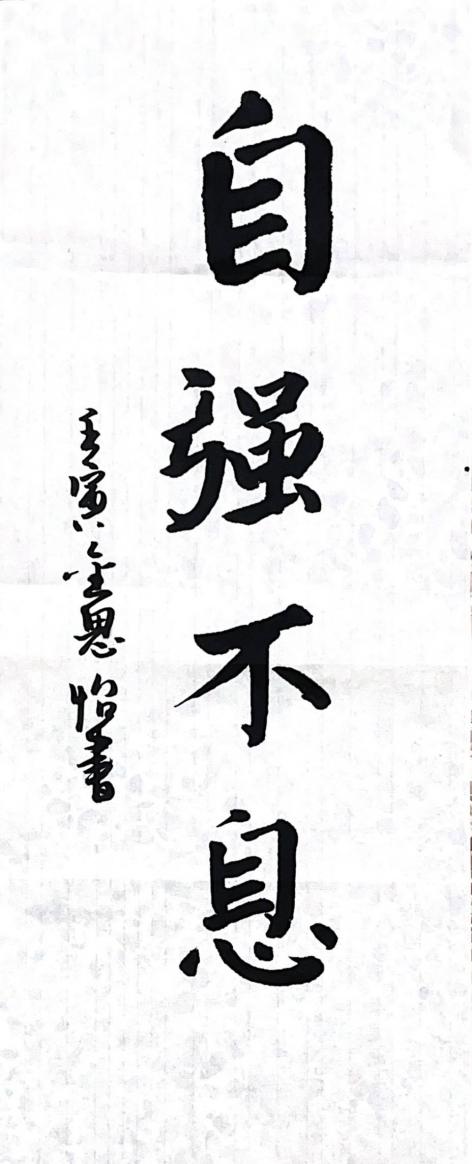 自强不息
壬寅金思怡書